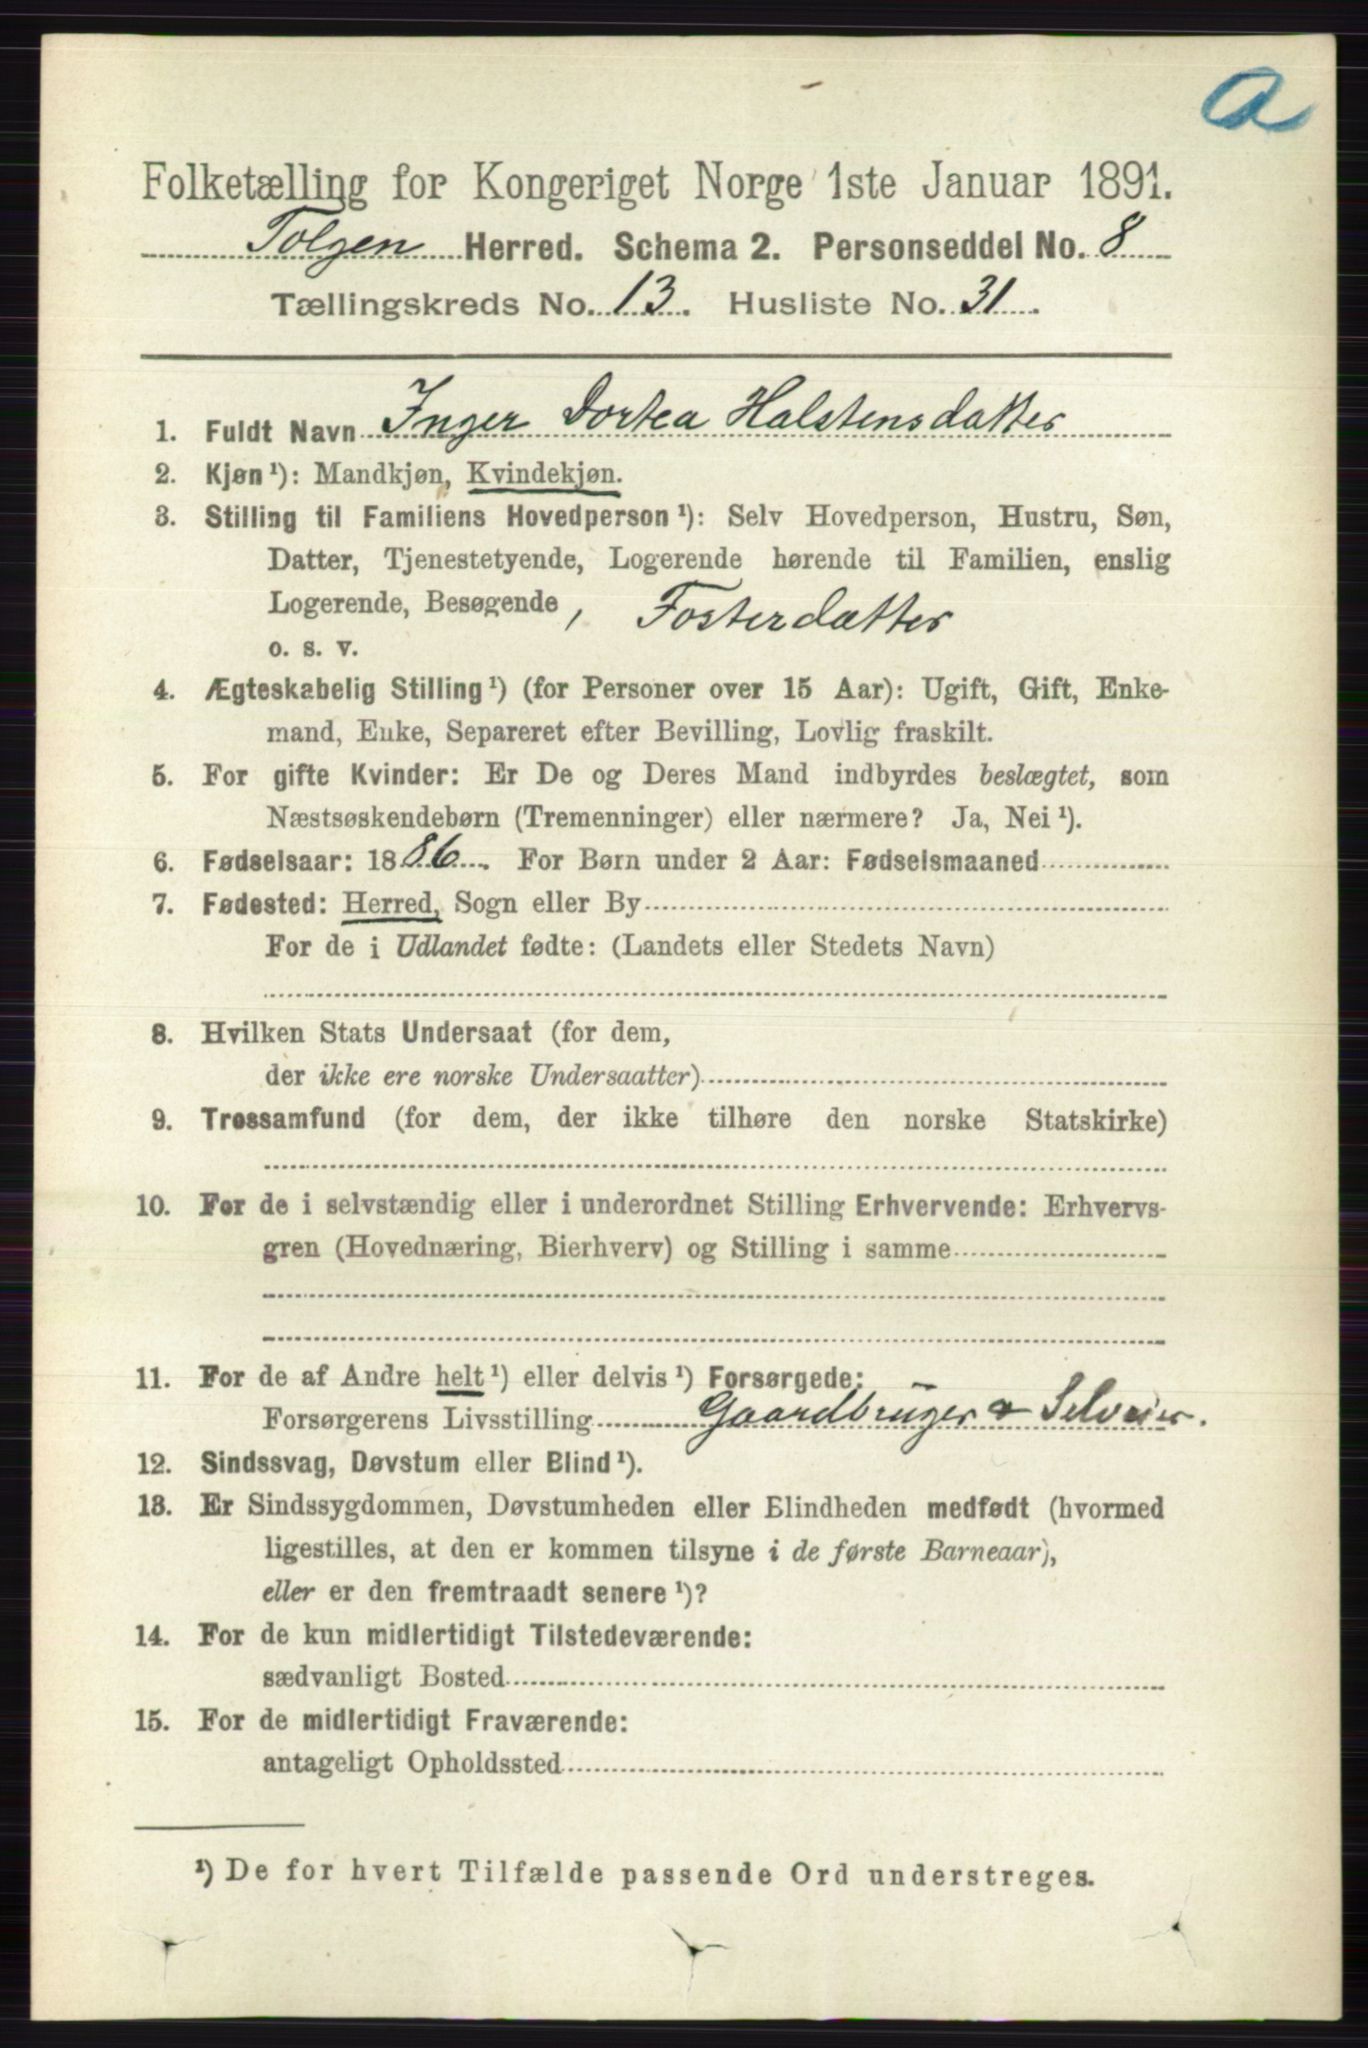 a
Folketælling for Kongeriget Norge 1ste Januar 1891.
Tolgen Herred. Schema 2. Personseddel No. 8
Tællingskreds No. 13. Husliste No. 31.
1. Fuldt Navn Inger Dortea Halstensdatter
2. Kjøn ¹): Mandkjøn, Kvindekjøn.
3. Stilling til Familiens Hovedperson ¹): Selv Hovedperson, Hustru, Søn,
Datter, Tjenestetyende, Logerende hørende til Familien, enslig
Logerende, Besøgende, Fosterdatter
o. s. v.
4. Ægteskabelig Stilling ¹) (for Personer over 15 Aar): Ugift, Gift, Enke-
mand, Enke, Separeret efter Bevilling, Lovlig fraskilt.
5. For gifte Kvinder: Er De og Deres Mand indbyrdes beslægtet, som
Næstsøskendebørn (Tremenninger) eller nærmere? Ja, Nei ¹).
6. Fødselsaar: 1886. For Børn under 2 Aar: Fødselsmaaned
7. Fødested: Herred, Sogn eller By
For de i Udlandet fødte: (Landets eller Stedets Navn)
8. Hvilken Stats Undersaat (for dem,
der ikke ere norske Undersaatter)
9. Trossamfund (for dem, der ikke tilhøre den norske Statskirke)
10. For de i selvstændig eller i underordnet Stilling Erhvervende: Erhvervs-
gren (Hovednæring, Bierhverv) og Stilling i samme
11. For de af Andre helt ¹) eller delvis ¹) Forsørgede:
Forsørgerens Livsstilling Gaardbruger & Selveier.
12. Sindssvag, Døvstum eller Blind ¹).
13. Er Sindssygdommen, Døvstumheden eller Blindheden medfødt (hvormed
ligestilles, at den er kommen tilsyne i de første Barneaar),
eller er den fremtraadt senere ¹)?
14. For de kun midlertidigt Tilstedeværende:
sædvanligt Bosted
15. For de midlertidigt Fraværende:
antageligt Opholdssted
¹) De for hvert Tilfælde passende Ord understreges.